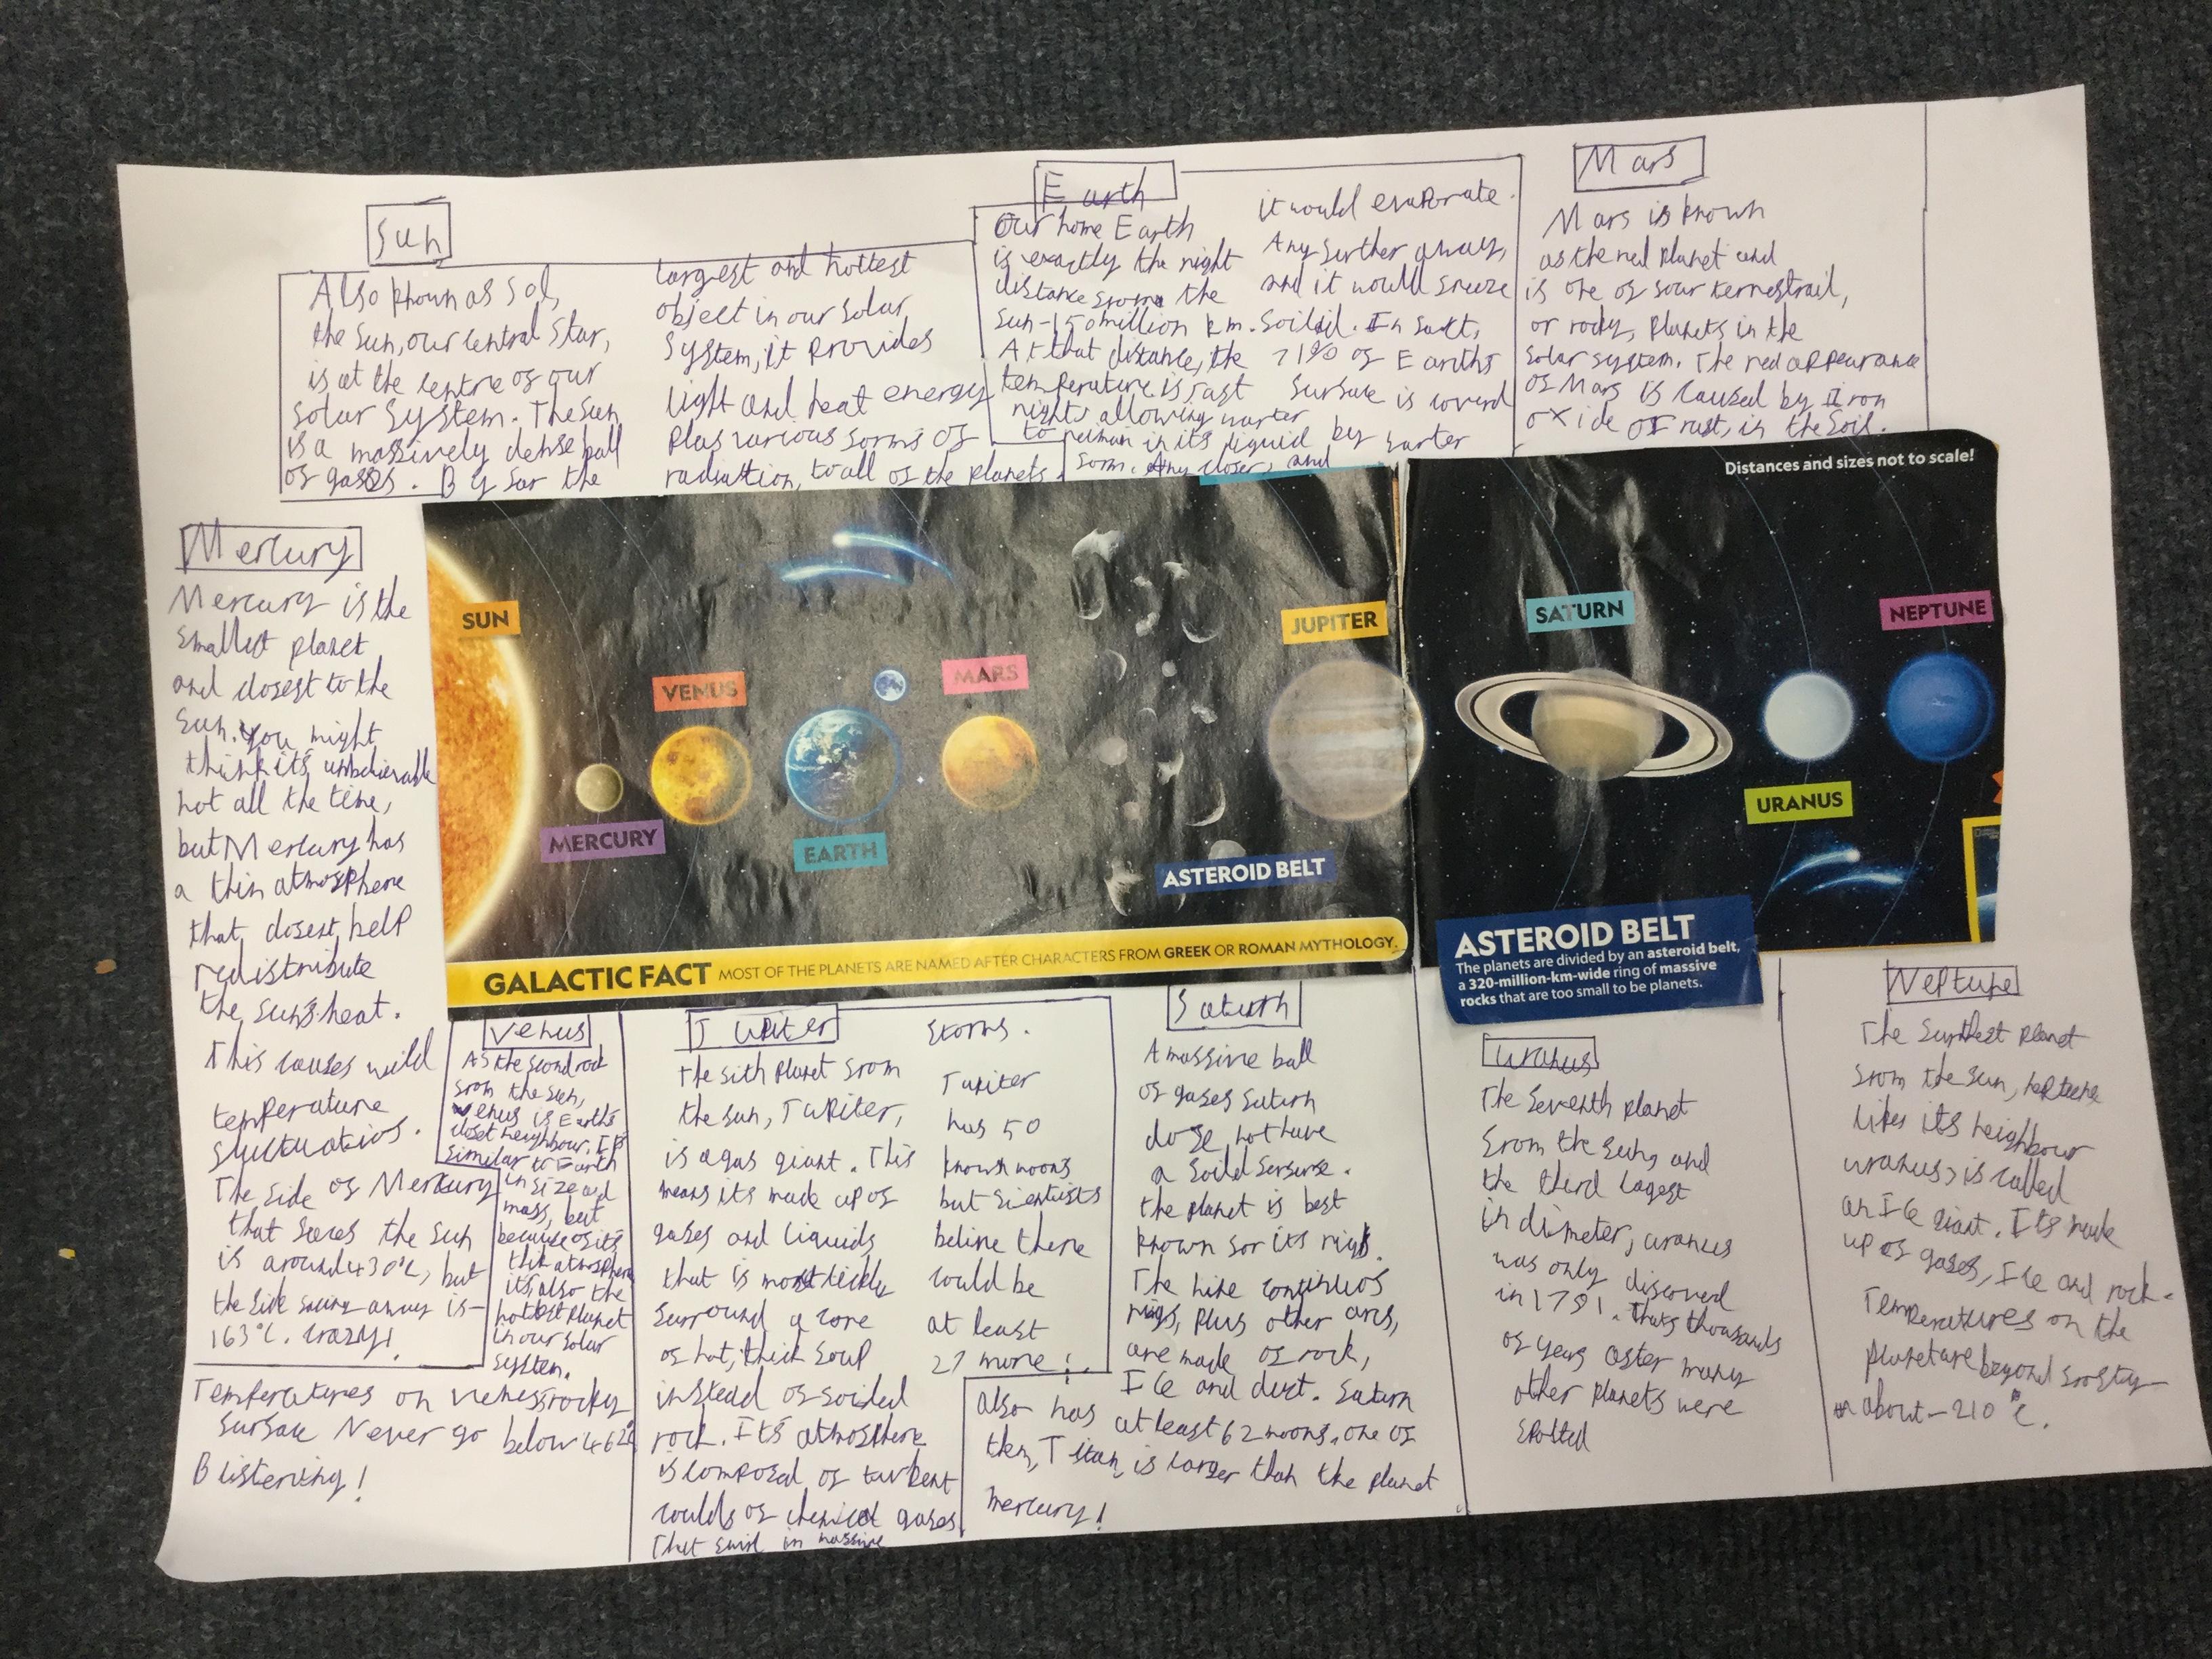 Sun
Also known as Sol,
the sun, our central star,
is at the centre of our
solar system. The sun
is a massively dense ball
of gases. By far the
largest and hottest
object in our solar
system, it provides
light and heat energy
plus various forms of
radiation, to all of the planets.
Earth
Our home Earth
is exactly the right
distance from the
Sun-150 million km.
At that distance, the
temperature is just
right, allowing warter
to remain in its liquid
form. Any closer, and
it would evaporate.
Any further away,
and it would freeze
soilid. In fact,
71% of Earths
surface is coverd
by warter
Mars
Mars is known
as the red planet and
is one of four terrestrail,
or rocky, planets in the
solar system. The red appearance
of Mars is caused by iron
oxide or rust, in the soil.
Mercury
Mercury is the
smallest planet
and closest to the
sun. You might
think it's unbelievable
hot all the time,
but Mercury has
a thin atmosphere
that doesent help
redistribute
the sun's heat.
This causes wild
temperature
fluctuatios.
The side of Mercury
that faces the sun
is around 430°C, but
the side facing away is -
163°C. Crazy!
Distances and sizes not to scale!
SUN
MERCURY
VENUS
EARTH
MARS
ASTEROID BELT
JUPITER
SATURN
URANUS
NEPTUNE
GALACTIC FACT MOST OF THE PLANETS ARE NAMED AFTER CHARACTERS FROM GREEK OR ROMAN MYTHOLOGY.
ASTEROID BELT
The planets are divided by an asteroid belt,
a 320-million-km-wide ring of massive
rocks that are too small to be planets.
Venus
As the second rock
from the sun,
Venus is Earth's
closet neighbour. It's
similar to Earth
in size and
mass, but
because of its
thik atmosphere
its also the
hottest planet
in our solar
system.
Temperatures on venus rocky
surface Never go below 462°C
Blistering!
Jupiter
The sith planet from
the sun, Jupiter,
is a gas giant. This
means its made up of
gases and liquids
that is
surround a core
of hot, thick soup
instead of soiled
rock. It's atmosphere
is composed of
coulds of chemical gases
that swirl in massive
storms.
Jupiter
has 50
known moons
but scientists
belive there
could be
at least
27 more!
Saturn
A massive ball
of gases saturn
dose not have
a soild
the planet is best
known for its rings.
The nine continuos
rings, plus other arcs,
are made of rock,
Ice and dust. Saturn
also has at least 62 moons. one of
them, Titan, is larger than the planet
mercury!
Uranus
The Seventh planet
from the sun, and
the third lagest
in dimeter, uranus
was only discoverd
in 1781. Thats thousands
of years after many
other planets were
spotted
Neptune
The furthest planet
from the sun, neptune
likes its neighbour
uranus, is called
an Ice giant. Its made
up of gases, Ice and rock.
Temperatures on the
planet are beyond frosty-
about -210°C.